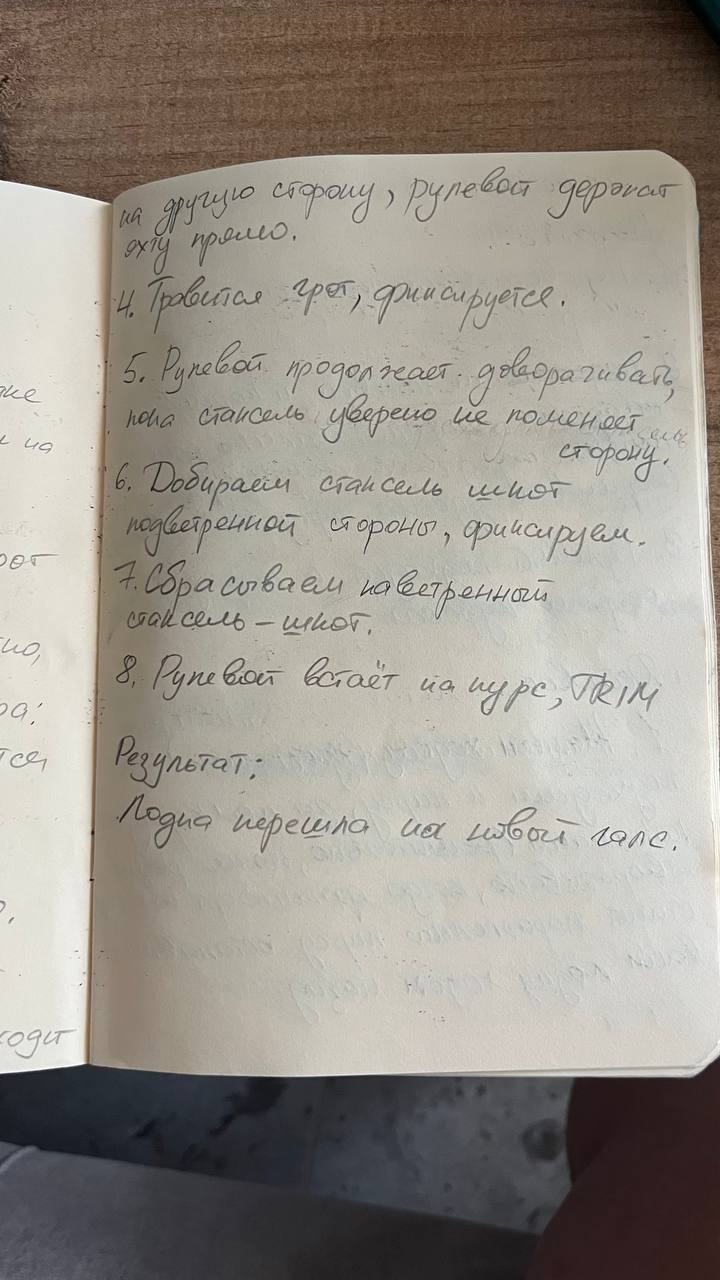 на другую сторону, рулевой держит
яхту прямо.
4. Травится грот, фиксируется.
5. Рулевой продолжает доворачивать,
пока стаксель уверено не поменяет
сторону.
6. Добираем стаксель шкот
подветренной стороны, фиксируем.
7. Сбрасываем наветренный
стаксель – шкот.
8. Рулевой встаёт на курс, TRIM
Результат:
Лодка перешла на новый галс.